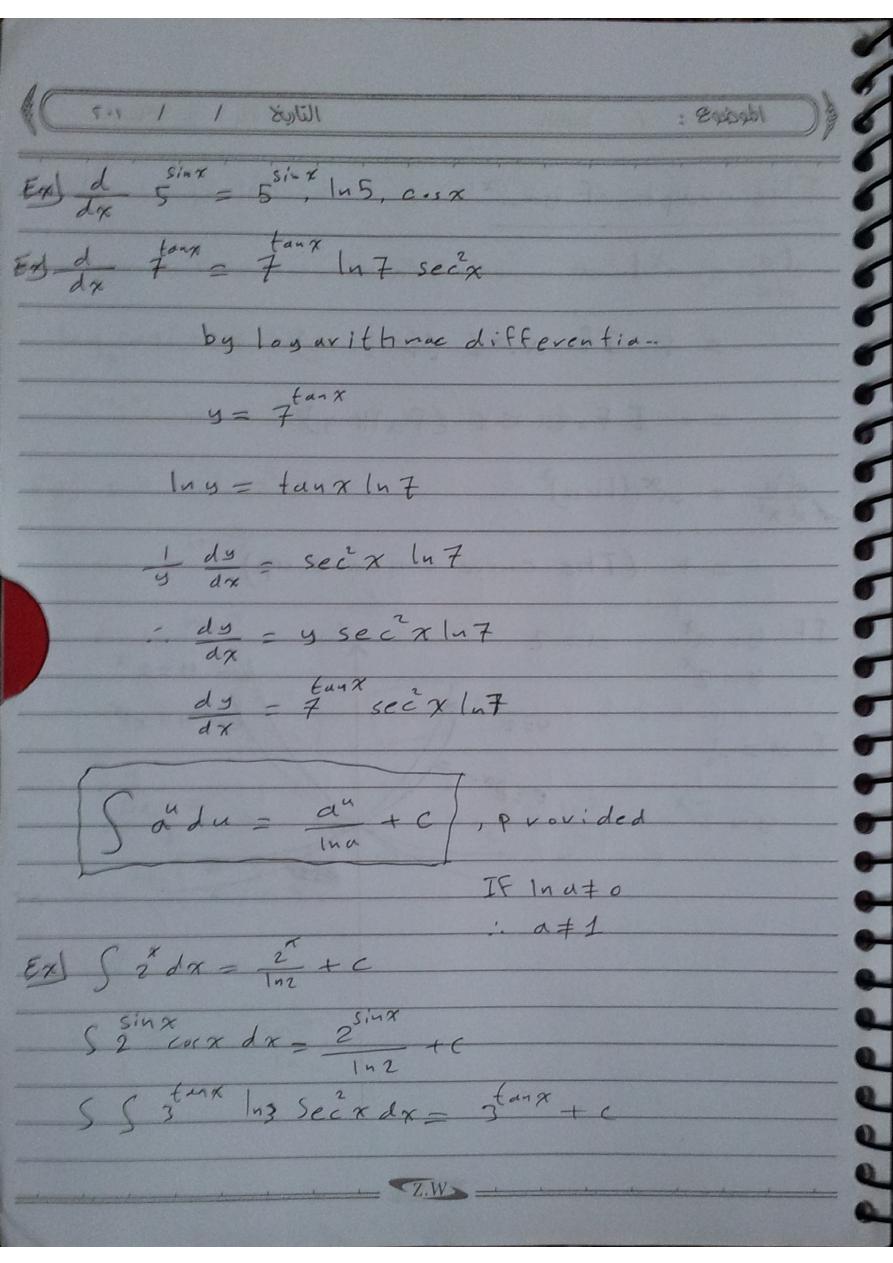 الموضوع : التاريخ / / ٢٠١
Ex] d/dx 5^sinx = 5^sinx . ln5 . cosx
Ex] d/dx 7^tanx = 7^tanx ln7 sec²x
by logarithmac differentia..
y = 7^tanx
ln y = tanx ln7
1/y dy/dx = sec²x ln7
∴ dy/dx = y sec²x ln7
dy/dx = 7^tanx sec²x ln7
∫ a^u du = a^u/ln a + c , provided
IF ln a ≠ 0
∴ a ≠ 1
Ex] ∫ 2^x dx = 2^x/ln2 + c
∫ 2^sinx cosx dx = 2^sinx/ln2 + c
∫ ∫ 3^tanx ln3 sec²x dx = 3^tanx + c
Z.W